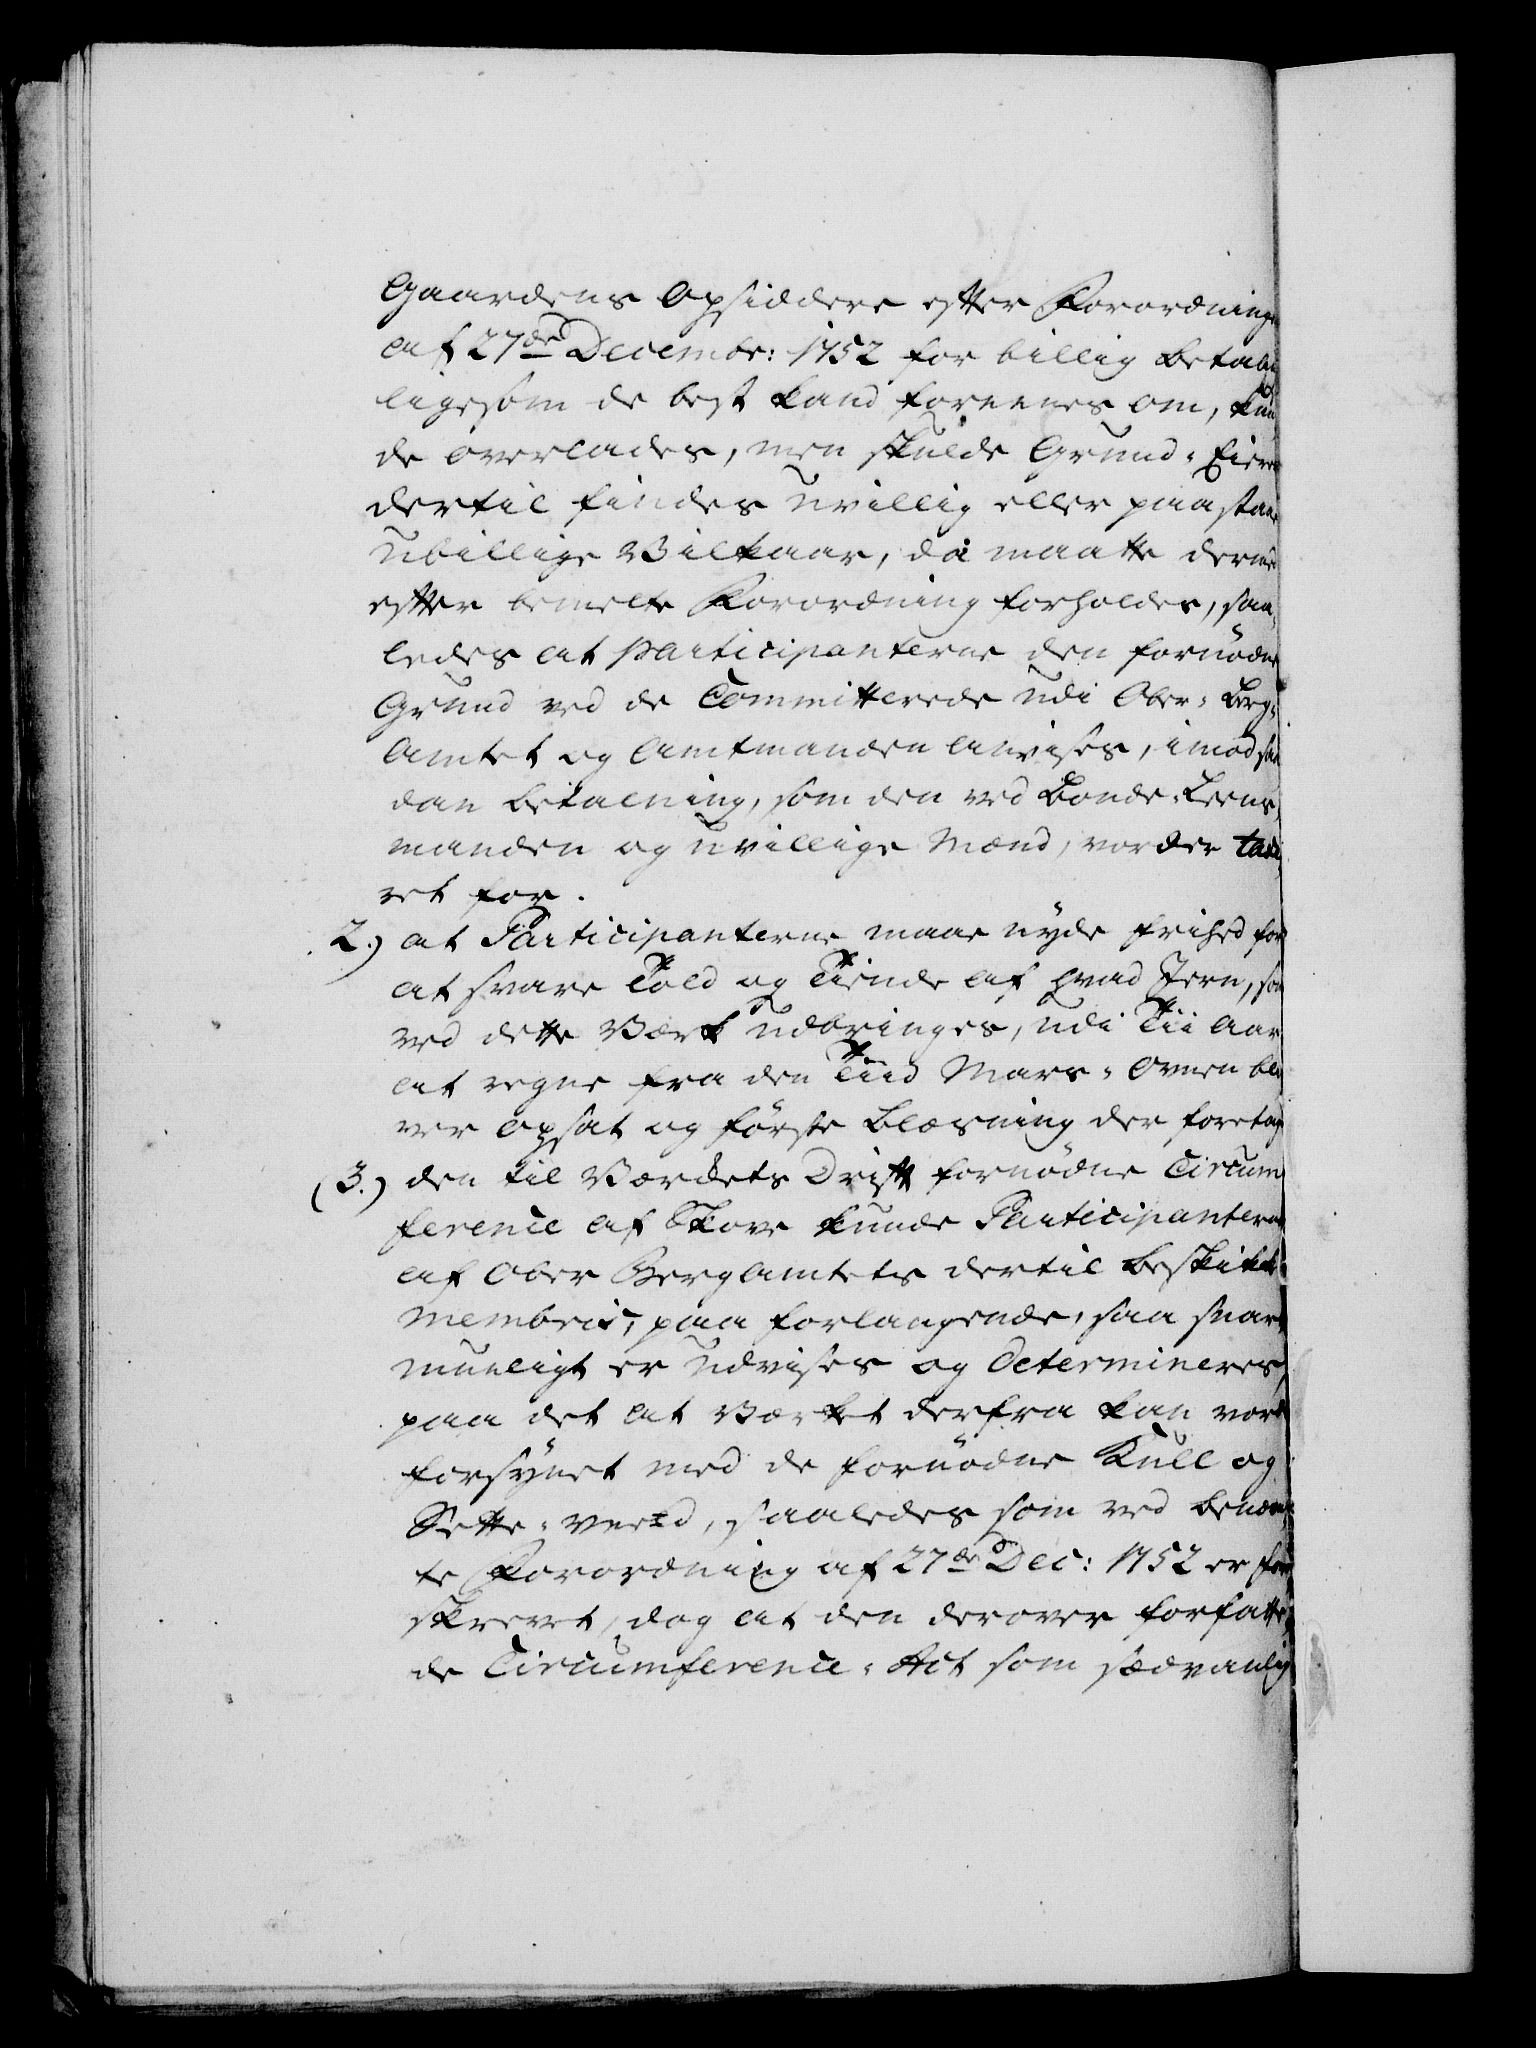 Gaardens Opsiddere efter Forordninge
af 27de Decembr: 1752 for billig betal
ligesom de best kand forenes om, kun
de overlades, men skulde Grund-Eiere
dertil findes uvillig eller paastaae
ubillige Vilkaar, da maatte dermed
efter bemelte Forordning forholdes, saa-
ledes at Participanterne den fornødne
Grund ved de Committerede udi Ober-Berg-
Amtet og Amtmanden anvises, imod saa
dan betalning, som den ved Bonde-Leens-
manden og uvillige Mænd, vorder taxe
ret for.
2.) at Participanterne maae nyde frihed for
at svare Told og Tiende af hvad Jern, som
ved dette Værk udbringes, udi Tii Aar
at regne fra den Tiid Mars-Ovnen bli
ver opsat og første blæsning der foretag
(3.) den til Værkets Drift fornødne Circum
ference af Skove kunde Participanterne
af Ober Bergamtets dertil beskikk
Membris, paa forlangende, saa snart
mueligt er udvises og determineres,
paa det at Værket derfra kan vord
forsynet med de fornødne Kull og
Sette-veed, saaledes som ved benævn
te Forordning af 27de Dec: 1752 er for
skrevet, dog at den derover forfatte
de Circumference-Act som sædvanlig